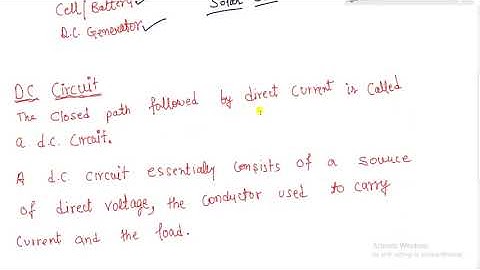 Cell/Battery ✓
D.C. Generator ✓
Solar
D.C Circuit
The closed path followed by direct current is called
a d.c. circuit.
A d.c circuit essentially consists of a source
of direct voltage, the conductor used to carry
current and the load.
Activate Windows